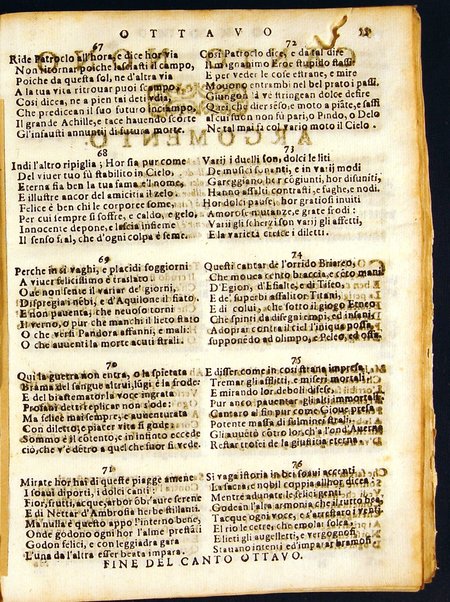 OTTAVO
67
Ride Patroclo all'hora, e dice hor via
Non ritornar poiche lasciasti il campo,
Poiche da questa sol, ne d'altra via
A la tua vita ritrouar puoi scampo,
Cosi dicea, ne a pien tai detti
Che predicean il suo futuro inciampo,
Il grande Achille, e tace hauendo scorte
Gl'infausti annuntij di futura morte.
68
Indi l'altro ripiglia; Hor sia pur come
Del viuer tuo fù stabilito in Cielo,
Eterna fia ben la tua fama e'l nome,
E illustre ancor del amicitia il zelo.
Felice è ben chi le corporee some,
Per cui sempre si soffre, e caldo, e gelo,
Innocente depone, e lascia insieme
Il senso fral, che d'ogni colpa è seme.
69
Perche in si vaghi, e placidi soggiorni
A viuer felicissimo è traslato
Oue non teme il variar de' giorni,
Dispregia i nèbi, e d'Aquilone il fiato.
E non pauenta, che neuoso torni
Il verno, o pur che manchi il lieto stato
O che versi Pandora affanni, e mali:
O che auuenti la morte acuti strali.
70
Qui la guerra non entra, o la spietata
Brama del sangue altrui, lùgi è la frode
E del biastemator la voce ingrata
Profani detti replicar non s'ode:
Ma felice mai sempre, e auuenturata
Con diletto, e piacer vita si gode;
Sommo è il cótento, e in infinto eccede
ciò, che v'è détro a quel che fuor si vede.
71
Mirate hor hai di queste piagge amene
I soaui diporti, i dolci canti;
Fior, frutti, acque, arbori, òbr'aure serene
E di Nettar d'Ambrosia herbe stillanti.
Ma nulla è questo appo l'interno bene,
Onde godono ogni hor l'alme prestanti
Godon felici, e con leggiadra gara
L'una da l'altra esser beata impara.
72
Così Patroclo dice, e da tal dire
Il magnanimo Eroe stupido stassi
E per veder le cose estrane, e mire
Mouono entrambi nel bel prato i passi.
Giungon là ve stringean dolce desire
Quei, che dier séso, e moto a piáte, e sassi
al cui suon non fù pari, o Pindo, o Delo
Ne tal mai fà col vario moto il Cielo.
73
Varij i duelli son, dolci le liti
De musici sonanti, e in varij modi
Gareggiano hor cógiunti, hor disuniti,
Hanno assalti contrasti, e fughe, e nodi.
Hor dolci pause, hor gratiosi inuiti
Amorose mutanze, e grate frodi:
Varij gli scherzi son varij gli affetti,
E la varietà cresce i diletti.
74
Questi cantar de l'orrido Briareo,
Che mouea cento braccia, e céto mani
D'Egion, d'Efialte, e di Tifeo,
E de' superbi assalitor Titani,
E di colui, che sotto il giogo Etneo
Che spinti da disegni empi, ed insani,
Adoprar contra il ciel l'iniqua possa,
supponédo ad olimpo, e Peleo ed ossa.
75
E disser come in cosi strana impresa
Tremar gli afflitti, e miseri mortali;
E mirando lor deboli difese,
Pur anco pauentar gli alti immortali
Cantaro al fin pur come Gioue presta
Potente massa di fulminei strali,
Gli auuétò cótro lor, ch'a l'ond'Auerna
Restar trofei de la giustitia eterna
76
Si vaga istoria in bei soaui accenti,
La sacra, e nobil coppia all'hor dicea:
Mentre adunate le felici genti
Godean l'alta armonia che il tutto bea,
Tacque ogni voce, e s'arrestaro i venti
El rio le cetre, che emola solea;
E lieti gli augelletti, e vergognosi
Stauano intenti ed imparar bramosi
FINE DEL CANTO OTTAVO.